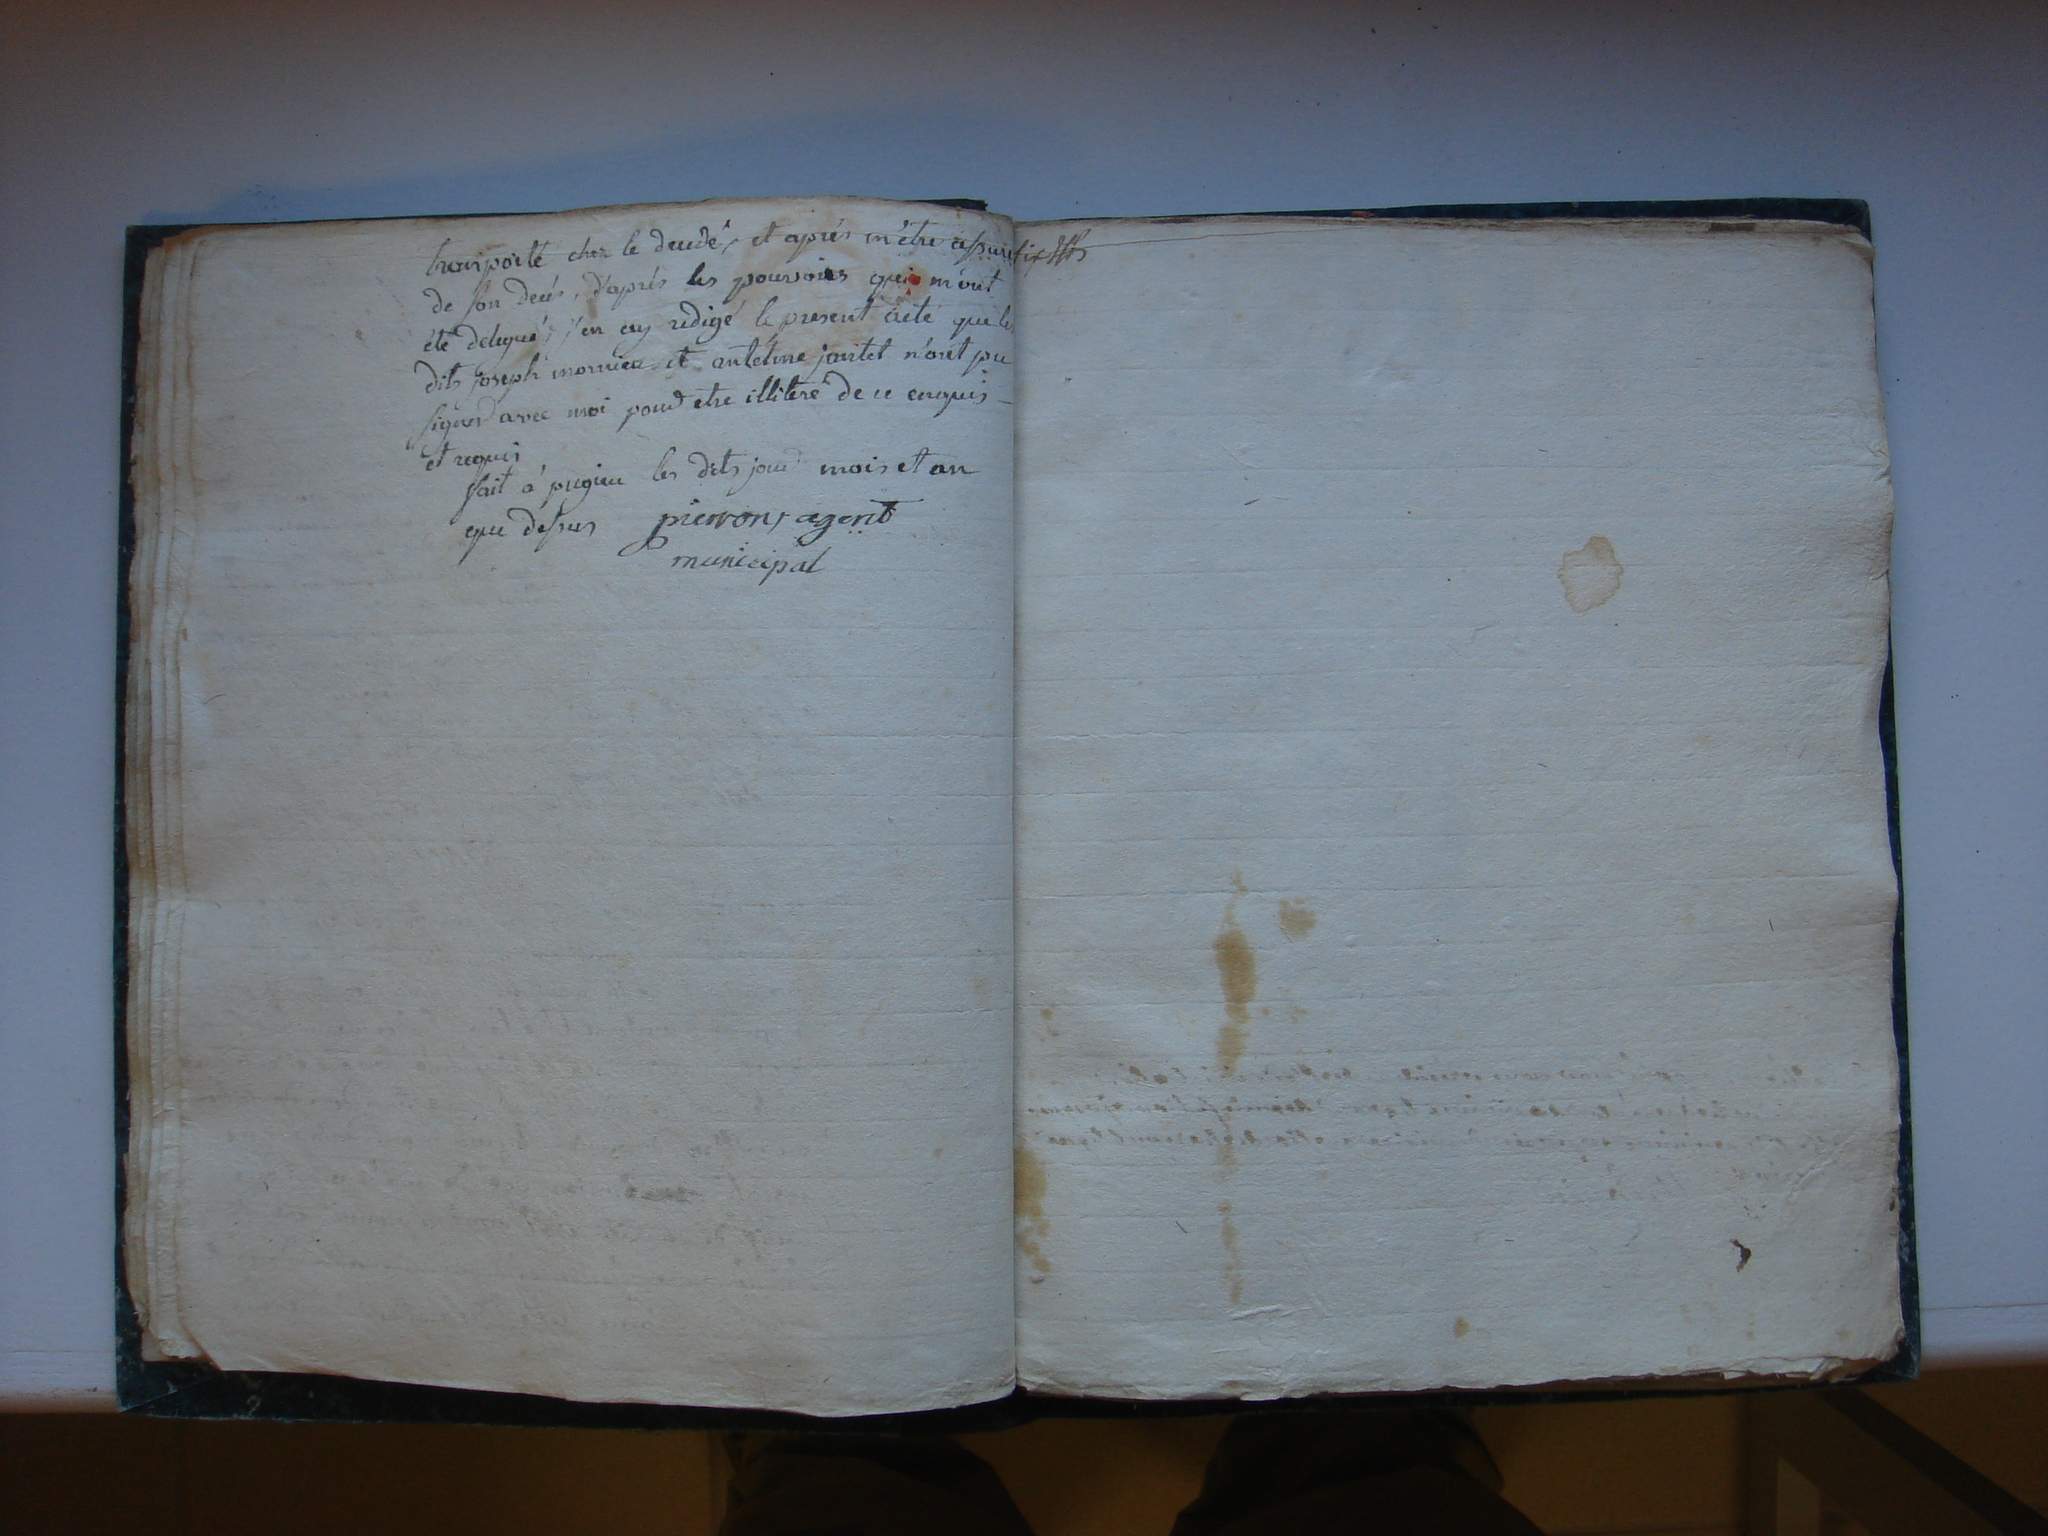 transporté chez le decedé, et aprés m'être assuré
de son decés, d'aprés les pouvoirs qui m'ont
été delegués, j'en ay redigé le present acte que les
dits joseph mornieu et antelme jantet n'ont pu
signer avec moi pour etre illiteré de ce enquis
et requis
fait à pugieu les dits jour mois et an
que dessus pierron, agent
municipal